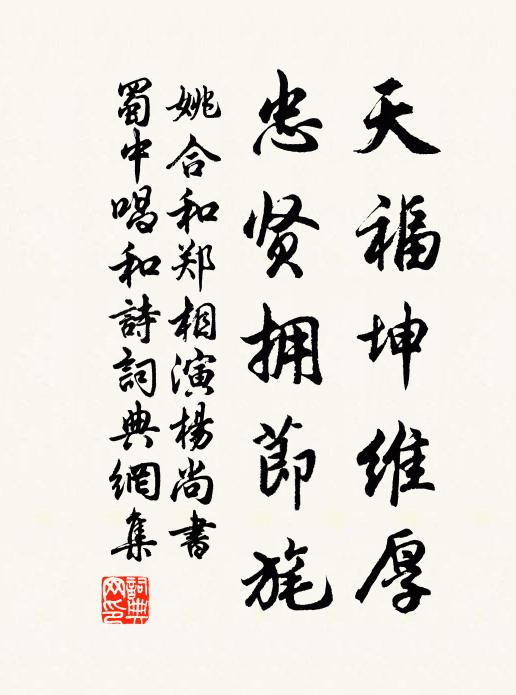 天福坤维厚
忠贤拥节旄
姚合和郑相演杨尚书
蜀中唱和詩詞典網集
詞典网印